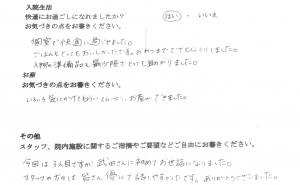 入院生活
快適にお過ごしになれましたか? はい ・ いいえ
お気づきの点をお書きください。
個室で快適に過ごせました。
ごはんもとてもおいしかったです。おやつまでとてもびっくりしました。
入院の準備品も最少限でとても助かりました。
お産
お気づきの点をお書きください。
いろいろ気にかけてもらい、スムーズにお産ができました。
その他
スタッフ、院内施設に関するご指摘やご要望などご自由にお書きください。
今回は3人目ですが武田さんに初めてお世話になりました。
スタッフの方々は皆さん優しくて話しやすかったです。ありがとうございました。